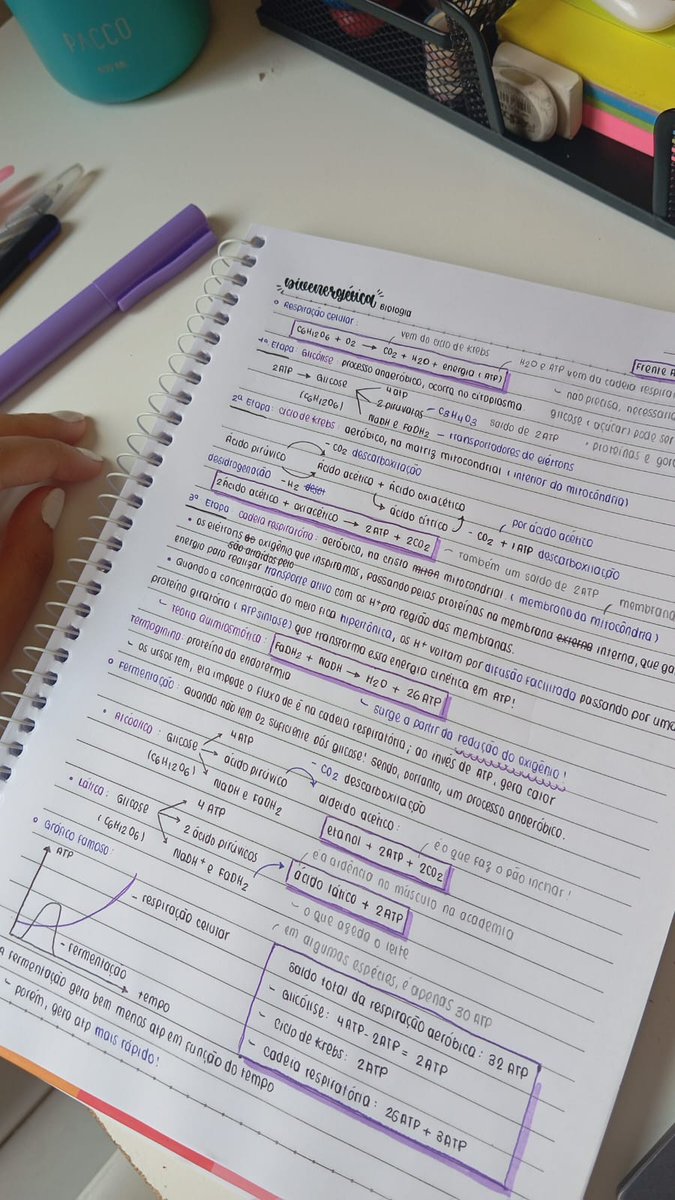 PACCO
Bioenergética
Biologia
Respiração celular:
C6H12O6 + O2 → CO2 + H2O + energia (ATP)
vem do ciclo de Krebs
H2O e ATP vem da cadeia respira
FRENTE A
1ª Etapa: Glicólise processo anaeróbico, ocorre no citoplasma
- não precisa, necessaria
glicose (açúcar) pode ser
proteínas e gor
2ATP → Glicose
(C6H12O6)
4ATP
2 piruvatos - C3H4O3 saldo de 2ATP
NADH e FADH2 - transportadores de elétrons
2ª Etapa: ciclo de Krebs: aeróbico, na matriz mitocondrial (interior da mitocôndria)
Ácido pirúvico
- CO2 descarboxilação
Ácido acético + Ácido oxiacético
desidrogenação -H2
ácido cítrico
- CO2 + 1ATP descarboxilação
por ácido acético
2Ácido acético + oxiacético → 2ATP + 2CO2
- também um saldo de 2ATP
3ª Etapa: cadeia respiratória: aeróbico, na crista mitocondrial (membrana da mitocôndria)
membrana
• os elétrons são atraídos pelo oxigênio que inspiramos, passando pelas proteínas na membrana externa interna, que ga
energia para realizar transporte ativo com os H+ pra região das membranas.
• Quando a concentração do meio fica hipertônica, os H+ voltam por difusão facilitada passando por uma
proteína giratória (ATPsintase) que transforma essa energia cinética em ATP!
- Teoria quimiosmótica: FADH2 + NADH → H2O + 26ATP
- surge a partir da redução do oxigênio!
Termogenina: proteína da endotermia
- os ursos tem, ela impede o fluxo de é na cadeia respiratória; ao invés de ATP, gera calor
Fermentação: Quando não tem O2 suficiente pós glicose! Sendo, portanto, um processo anaeróbico.
• Alcóolica: Glicose
(C6H12O6)
4ATP
ácido pirúvico
NADH e FADH2
- CO2 descarboxilação
aldeído acético:
etanol + 2ATP + 2CO2
é o que faz o pão inchar!
• Lática: Glicose
(C6H12O6)
4 ATP
2 ácido pirúvicos
NADH+ e FADH2
ácido lático + 2ATP
é a ardência no músculo na academia
- o que azeda o leite
Gráfico famoso:
ATP
- respiração celular
- fermentação
tempo
A fermentação gera bem menas atp em função do tempo
- porém, gera atp mais rápido!
em algumas espécies, é apenas 30 ATP
saldo total da respiração aeróbica: 32 ATP
- Glicólise: 4ATP - 2ATP = 2ATP
- Ciclo de Krebs: 2ATP
- cadeia respiratória: 26ATP + 2ATP